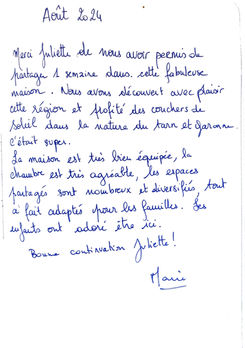 Août 2024
Merci Juliette de nous avoir permis de
partager 1 semaine dans cette fabuleuse
maison. Nous avons découvert avec plaisir
cette région et profité des couchers de
soleil dans la nature du tarn et Garonne.
C'était super.
La maison est très bien équipée, la
chambre est très agréable, les espaces
partagés sont nombreux et diversifiés, tout
à fait adaptés pour les familles. Les
enfants ont adoré être ici.
Bonne continuation Juliette !
Marie